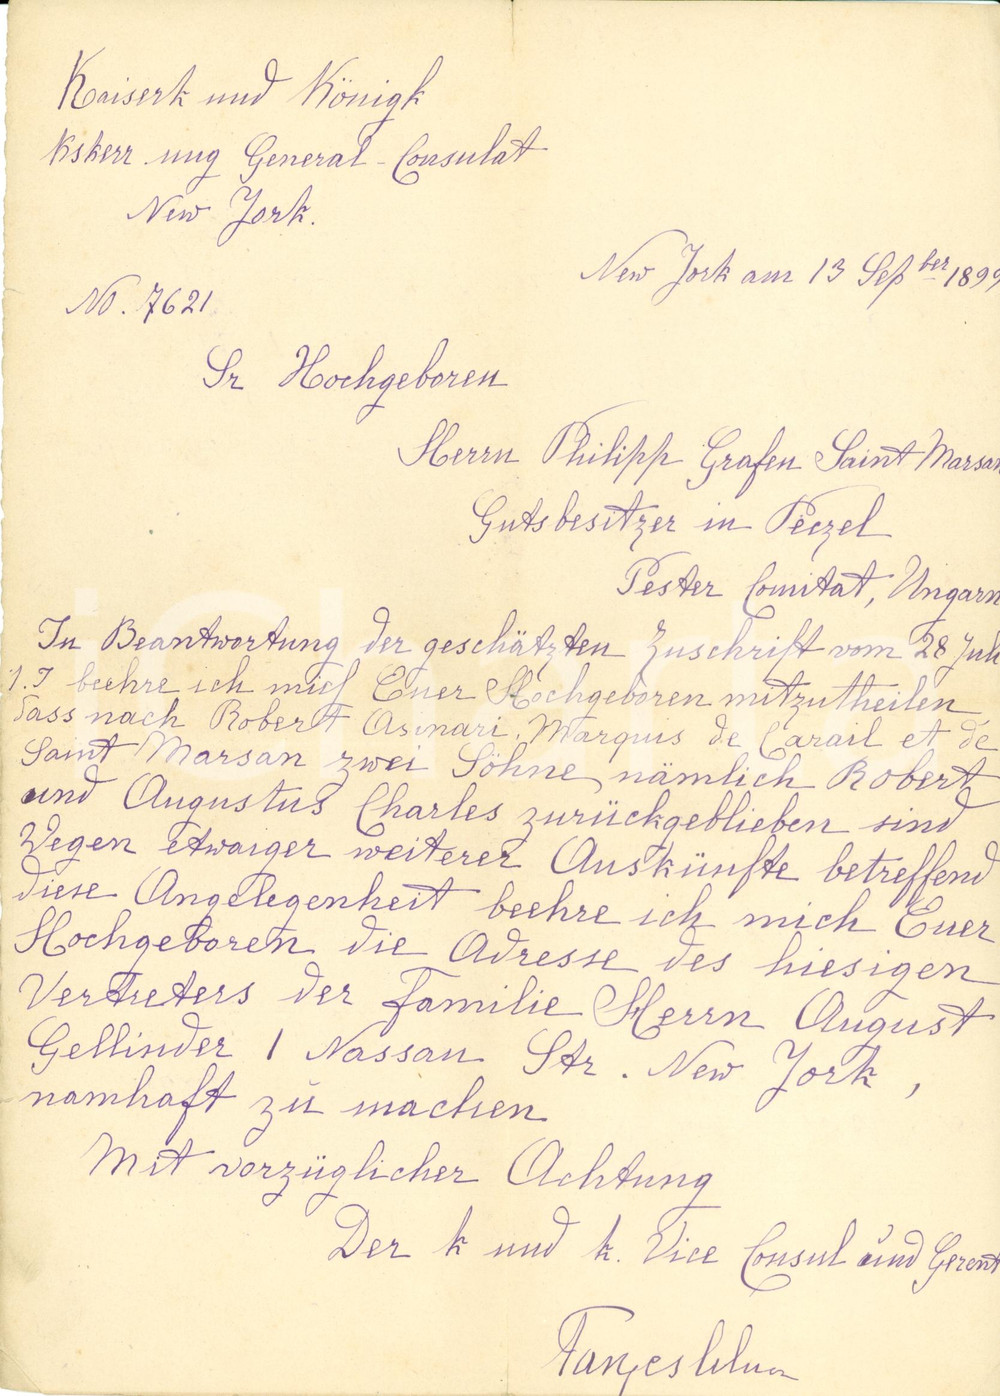 Kaiserk und Königk
Kskerr ung General-Consulat
New York.
New York am 13 Sepber 1899
No. 7621
Sr Hochgeboren
Herrn Philipp Grafen Saint Marsan
Gutsbesitzer in Péczel
Pester Comitat, Ungarn
In Beantwortung der geschätzten Zuschrift vom 28 Juli
1. J beehre ich mich Euer Hochgeboren mitzutheilen
dass nach Robert Asinari, Marquis de Carail et de
Saint Marsan zwei Söhne nämlich Robert
und Augustus Charles zurückgeblieben sind
Wegen etwaiger weiterer Auskünfte betreffend
diese Angelegenheit beehre ich mich Euer
Hochgeboren die Adresse des hiesigen
Vertreters der Familie Herrn August
Gellinder 1 Nassan Str. New York,
namhaft zu machen
Mit vorzüglicher Achtung
Der k und k. Vice Consul und Gerent